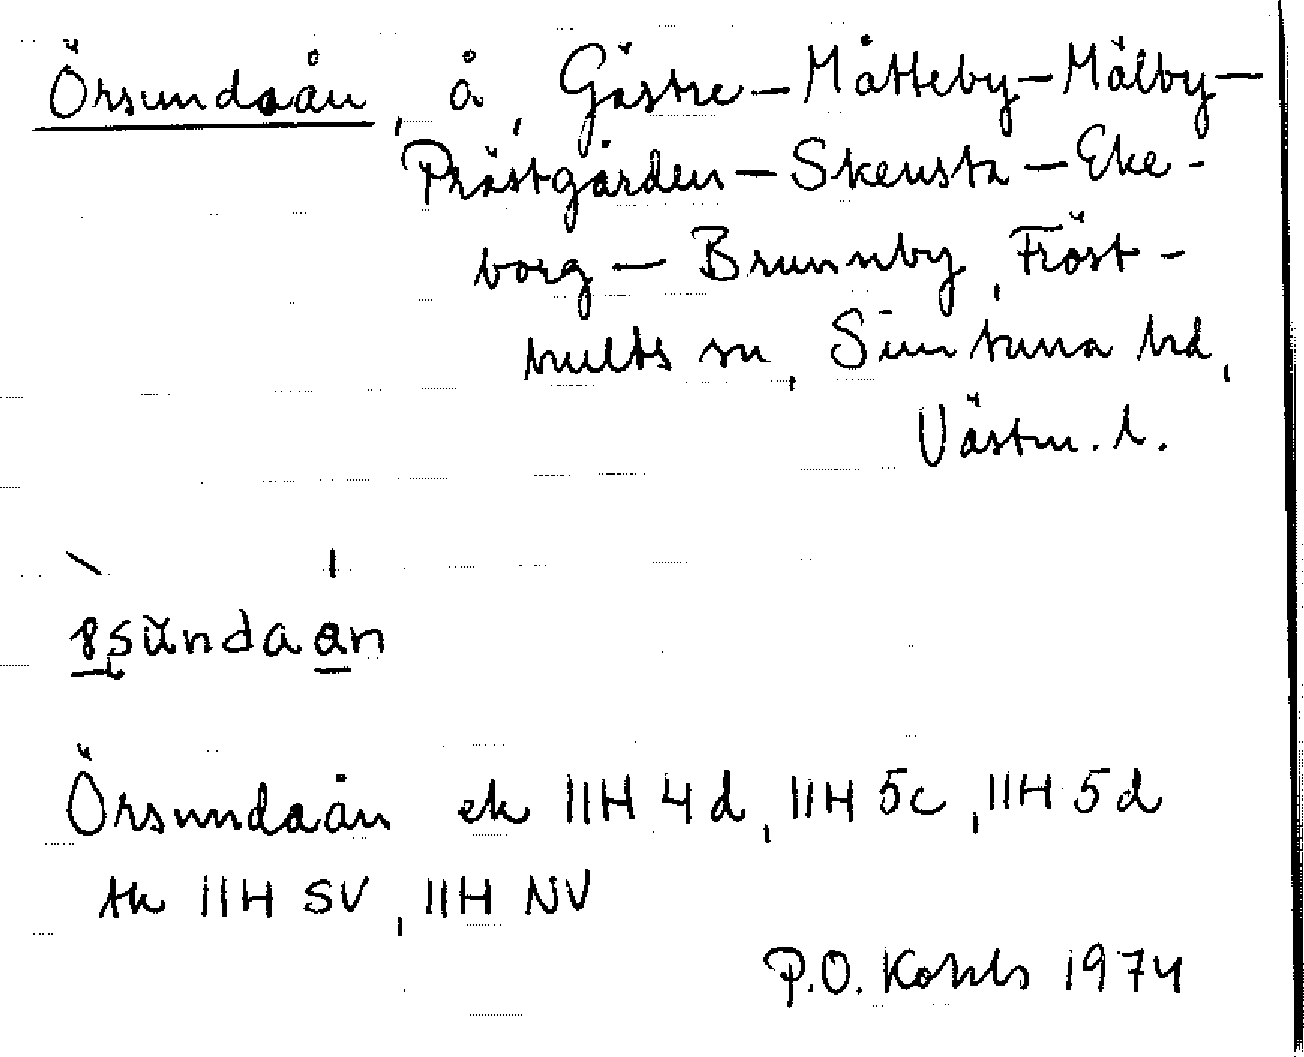 Örsundaån, å, Gästre – Måtteby – Mälby –
Prästgården – Skensta – Eke-
borg – Brunnby, Fröst-
hults sn, Simtuna hd,
Västm. l.
Örsundaån ek 11H 4d, 11H 5c, 11H 5d
tk 11H SV, 11H NV
P.O. Kohls 1974